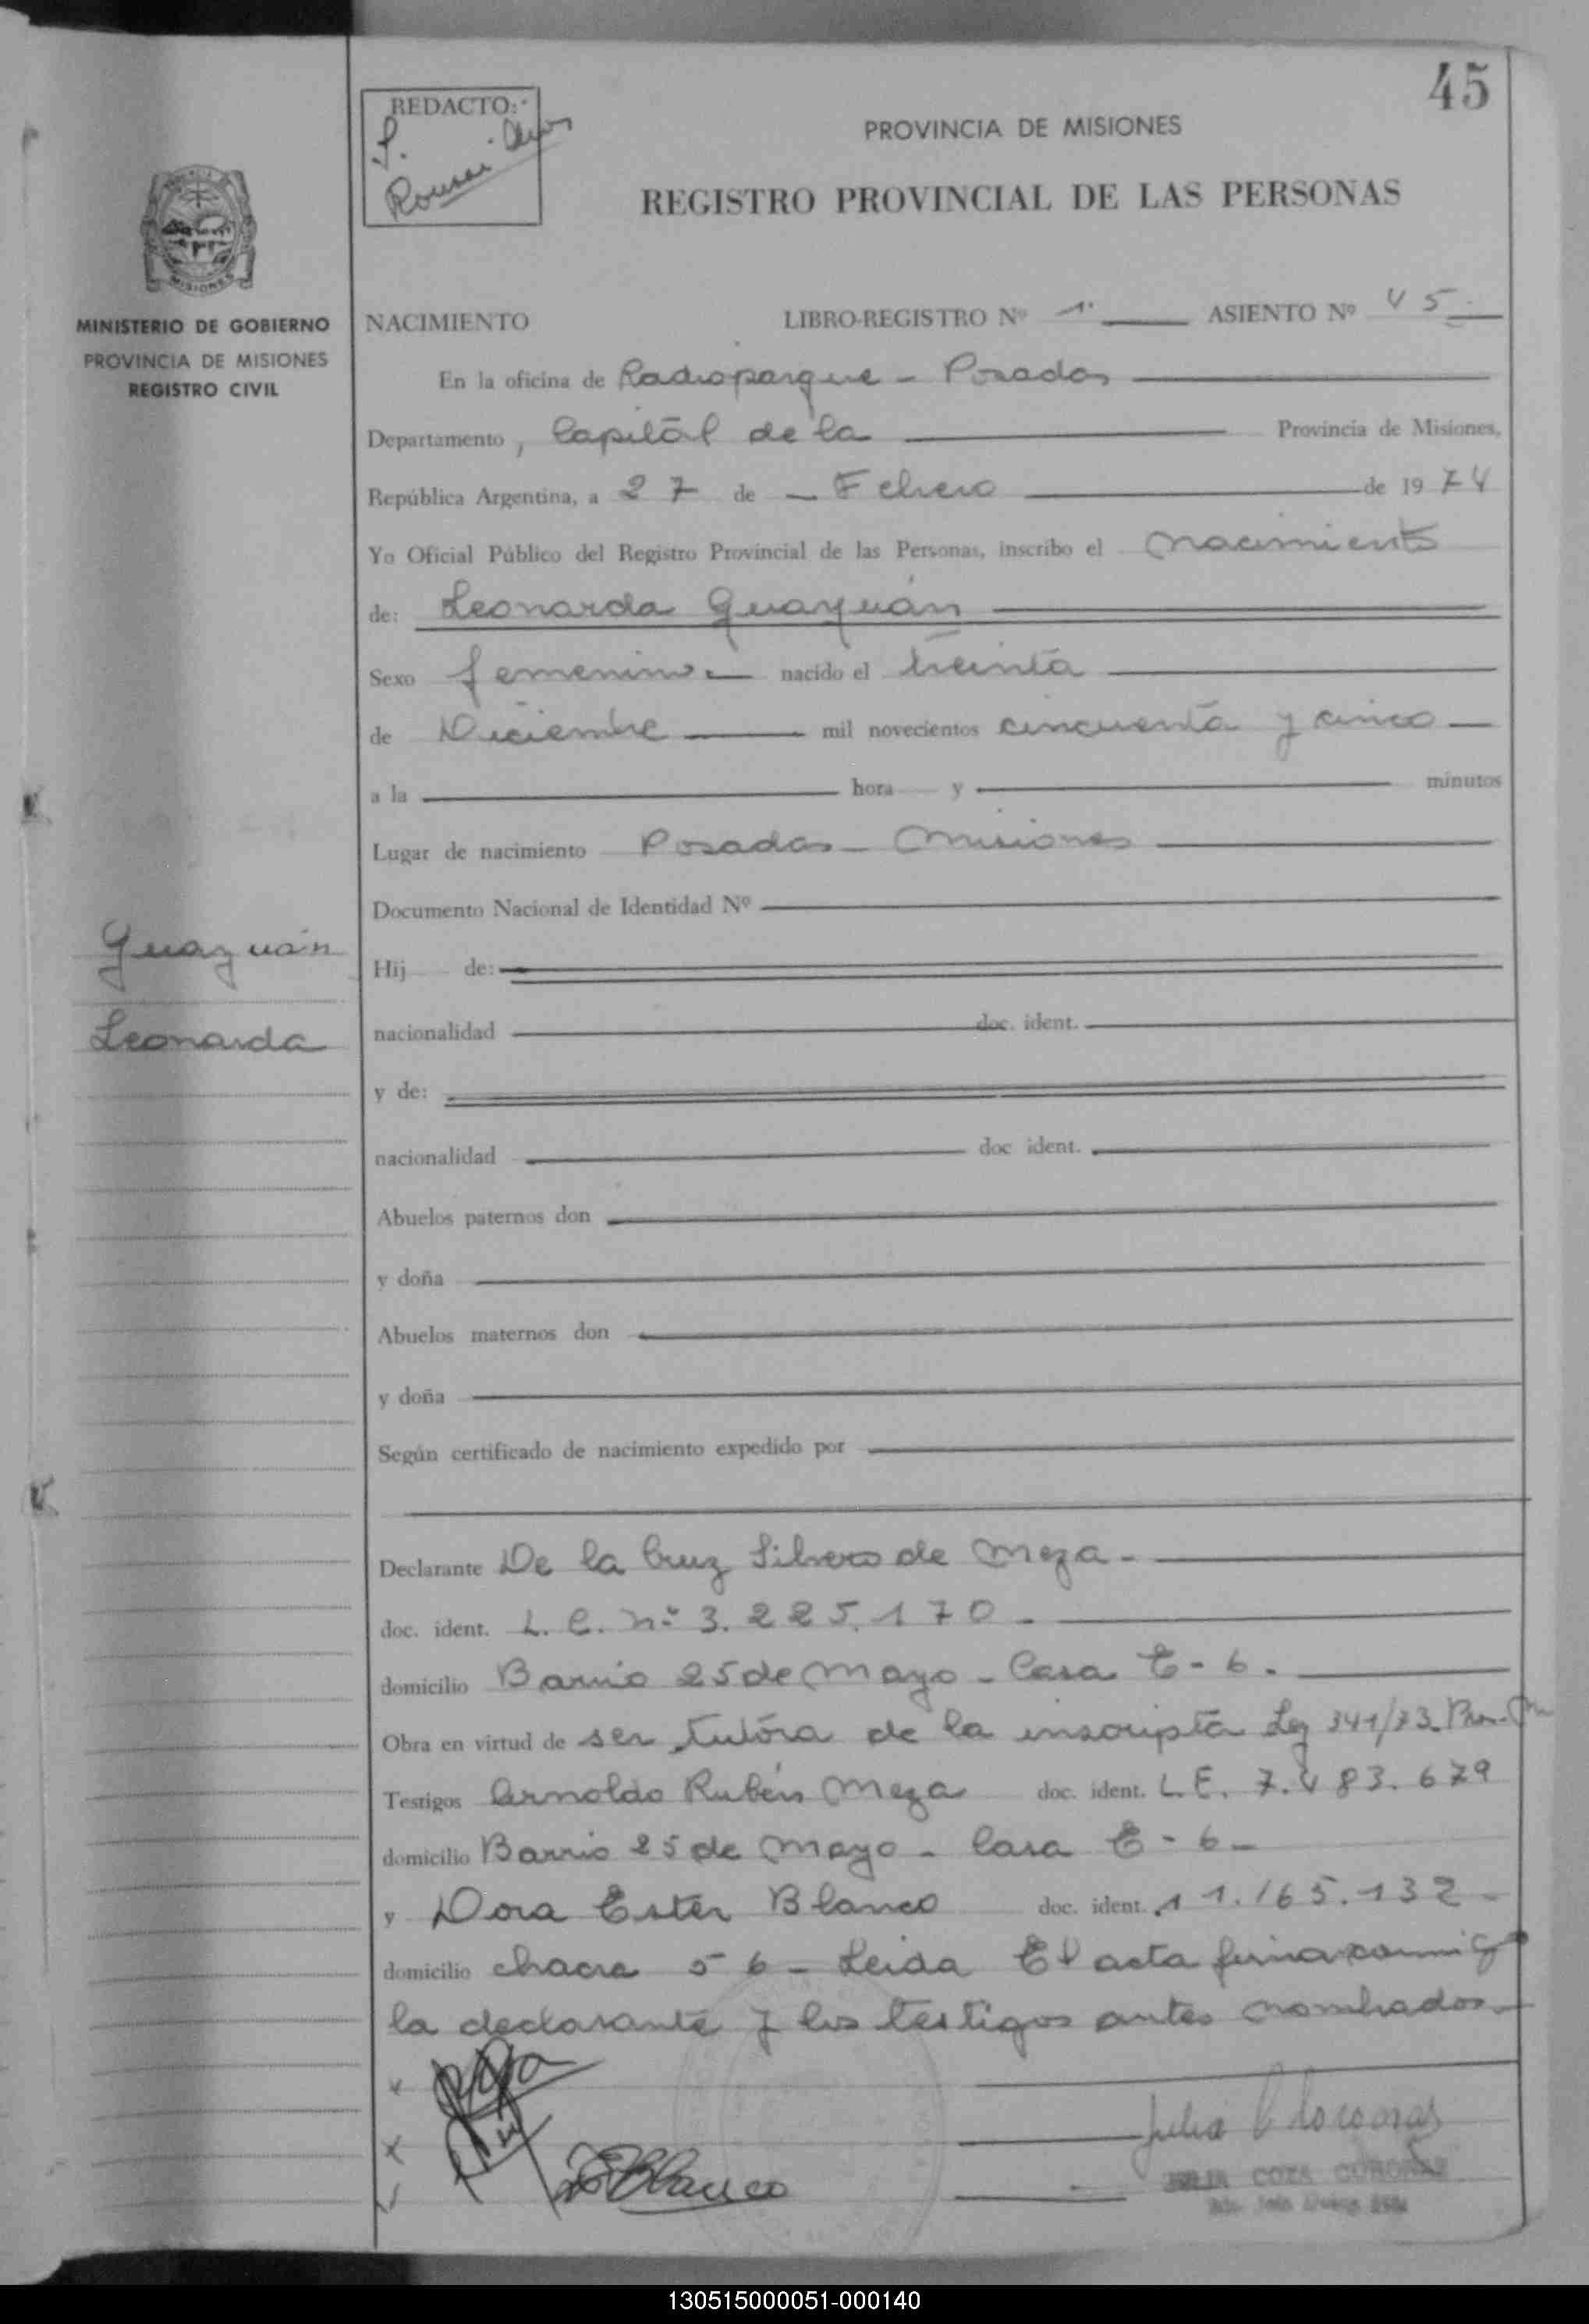 45
REDACTO:
PROVINCIA DE MISIONES
REGISTRO PROVINCIAL DE LAS PERSONAS
MISIONES
MINISTERIO DE GOBIERNO
PROVINCIA DE MISIONES
REGISTRO CIVIL
NACIMIENTO LIBRO-REGISTRO Nº 1· ASIENTO Nº 45
En la oficina de Radioparque - Posadas
Departamento, Capital de la Provincia de Misiones,
República Argentina, a 27 de Febrero de 1974
Yo Oficial Público del Registro Provincial de las Personas, inscribo el nacimiento
de: Leonarda Guayuán
Sexo femenino nacido el treinta
de Diciembre mil novecientos cincuenta y cinco
a la hora y minutos
Lugar de nacimiento Posadas - Misiones
Documento Nacional de Identidad Nº
Guayuán
Hij de:
Leonarda
nacionalidad doc. ident.
y de:
nacionalidad doc ident.
Abuelos paternos don
y doña
Abuelos maternos don
y doña
Según certificado de nacimiento expedido por
Declarante De la Cruz Silvero de Meza -
doc. ident. L. C. nº 3.225.170 -
domicilio Barrio 25 de Mayo - Casa E-6.
Obra en virtud de ser tutora de la inscripta Ley 341/73
Testigos Arnoldo Rubén Meza doc. ident. L.E. 7.483.679
domicilio Barrio 25 de Mayo - Casa E-6-
y Dora Ester Blanco doc. ident. 11.165.132-
domicilio chacra 56 - Leida El acta firma conmigo
la declarante y los testigos antes nombrados
Blanco
Julia
JULIA
130515000051-000140